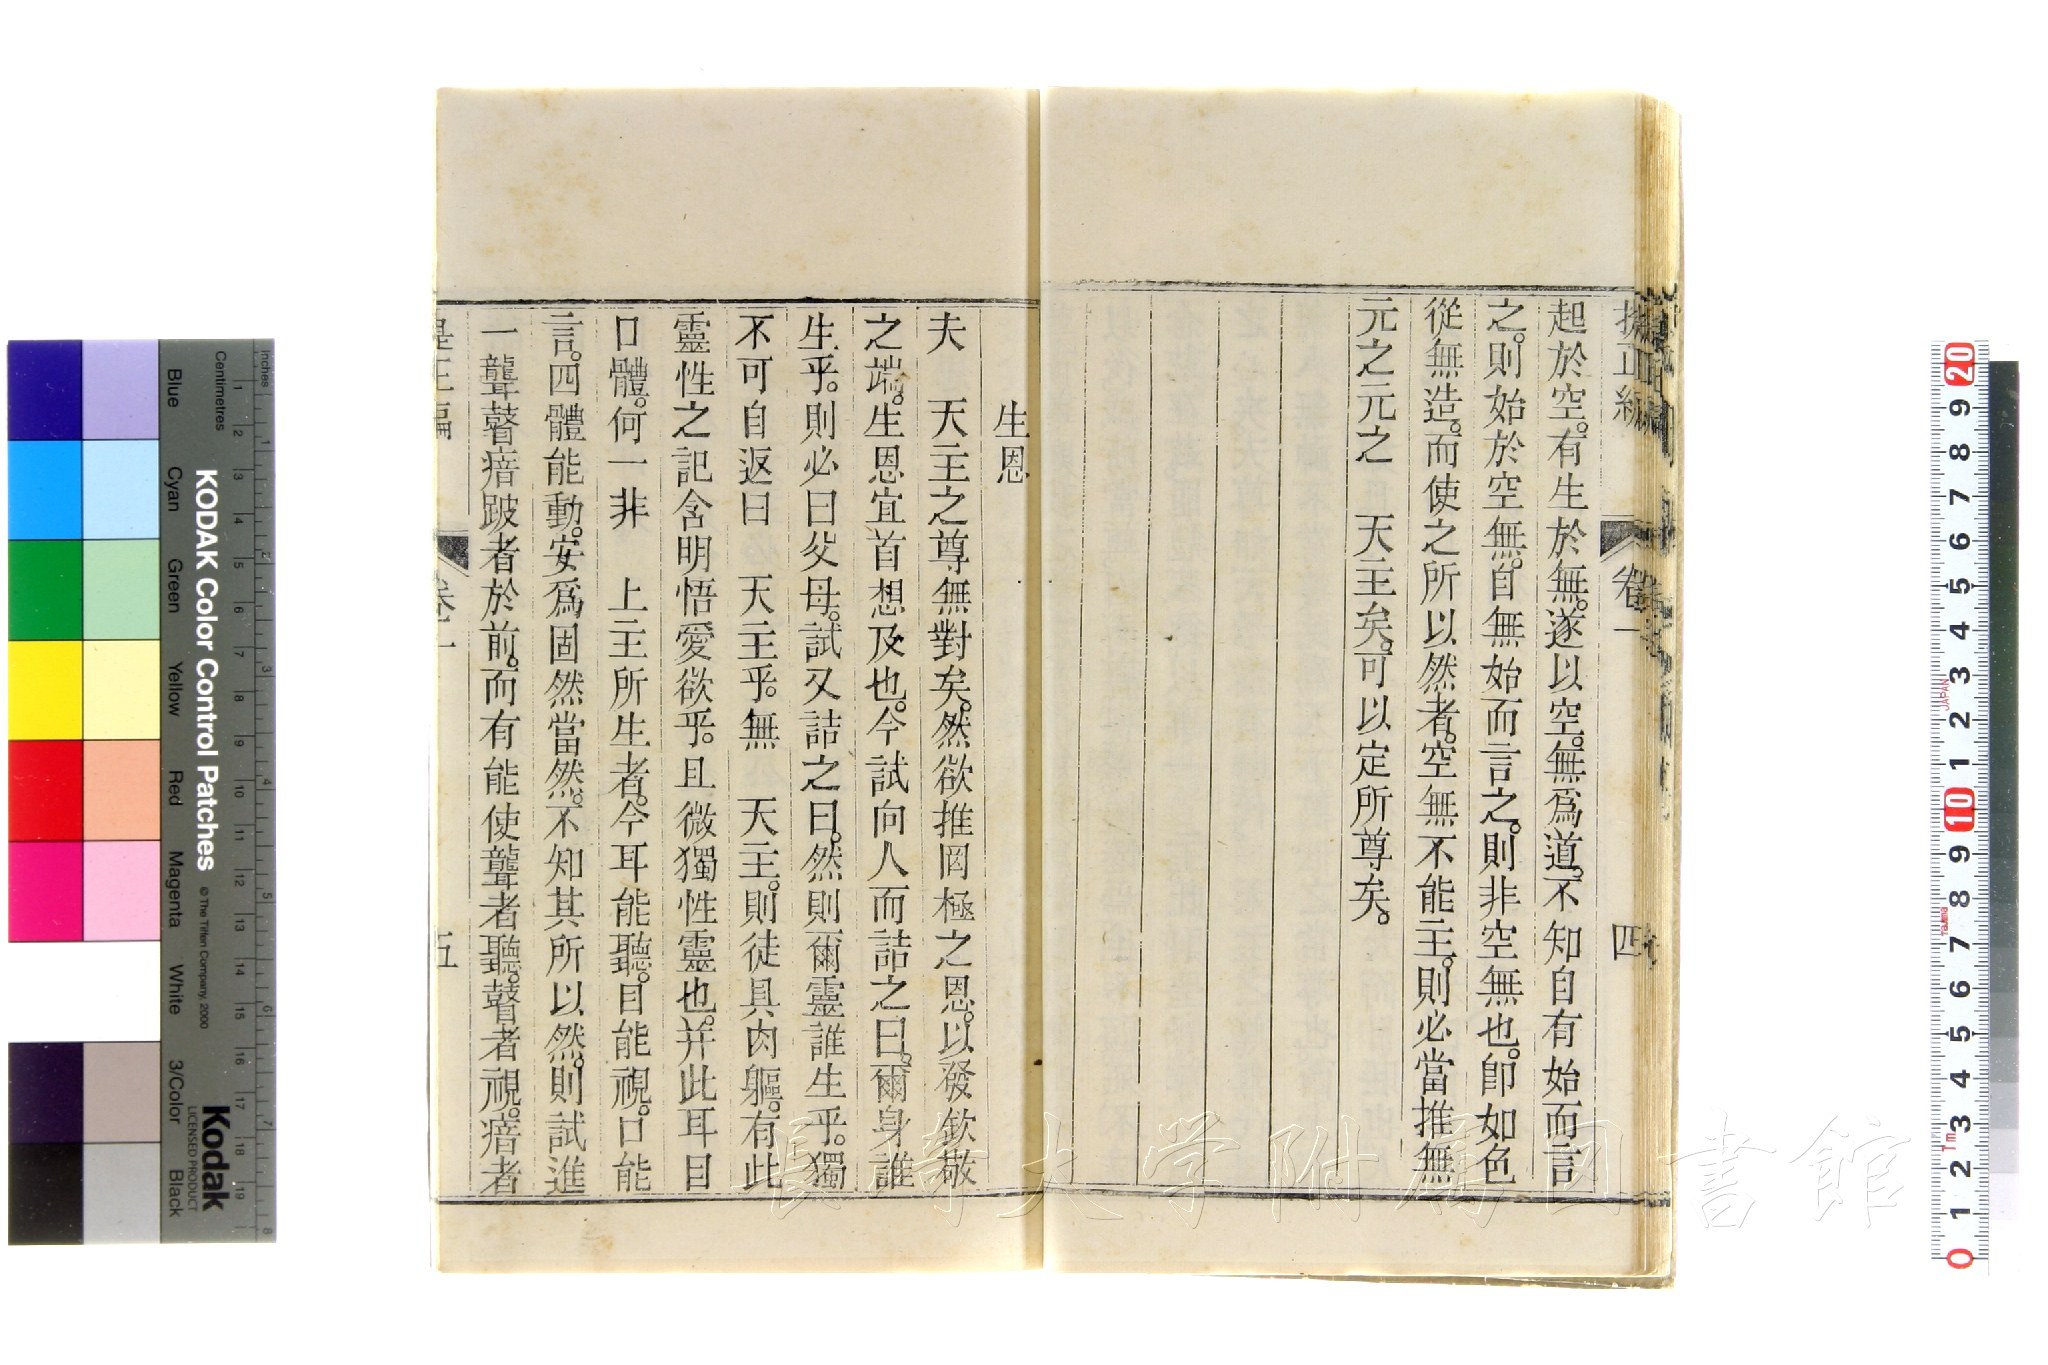 起於空。有生於無。遂以空。無爲道。不知自有始而言
之。則始於空無。自無始而言之。則非空無也。卽如色
從無造。而使之所以然者。空無不能主。則必當推無
元之元之　天主矣。可以定所尊矣。
卷一
四
生恩
夫　天主之尊無對矣。然欲推罔極之恩。以發欽敬
之端。生恩宜首想及也。今試向人而詰之曰。爾身誰
生乎。則必曰父母。試又詰之曰。然則爾靈誰生乎。獨
不可自返曰　天主乎。無　天主。則徒具肉軀。有此
靈性之記含明悟愛欲乎。且微獨性靈也。并此耳目
口體。何一非　上主所生者。今耳能聽。目能視。口能
言。四體能動。安爲固然當然。不知其所以然。則試進
一聾瞽瘖跛者於前。而有能使聾者聽。瞽者視。瘖者
五
長崎大学附属図書館
KODAK Color Control Patches
© The Tiffen Company, 2000
Kodak
LICENSED PRODUCT
Inches
Centimetres
Blue
Cyan
Green
Yellow
Red
Magenta
White
3/Color
Black
1 2 3 4 5 6 7 8 9 10 11 12 13 14 15 16 17 18 19
20 9 8 7 6 5 4 3 2 1 10 9 8 7 6 5 4 3 2 1 0
JAPAN